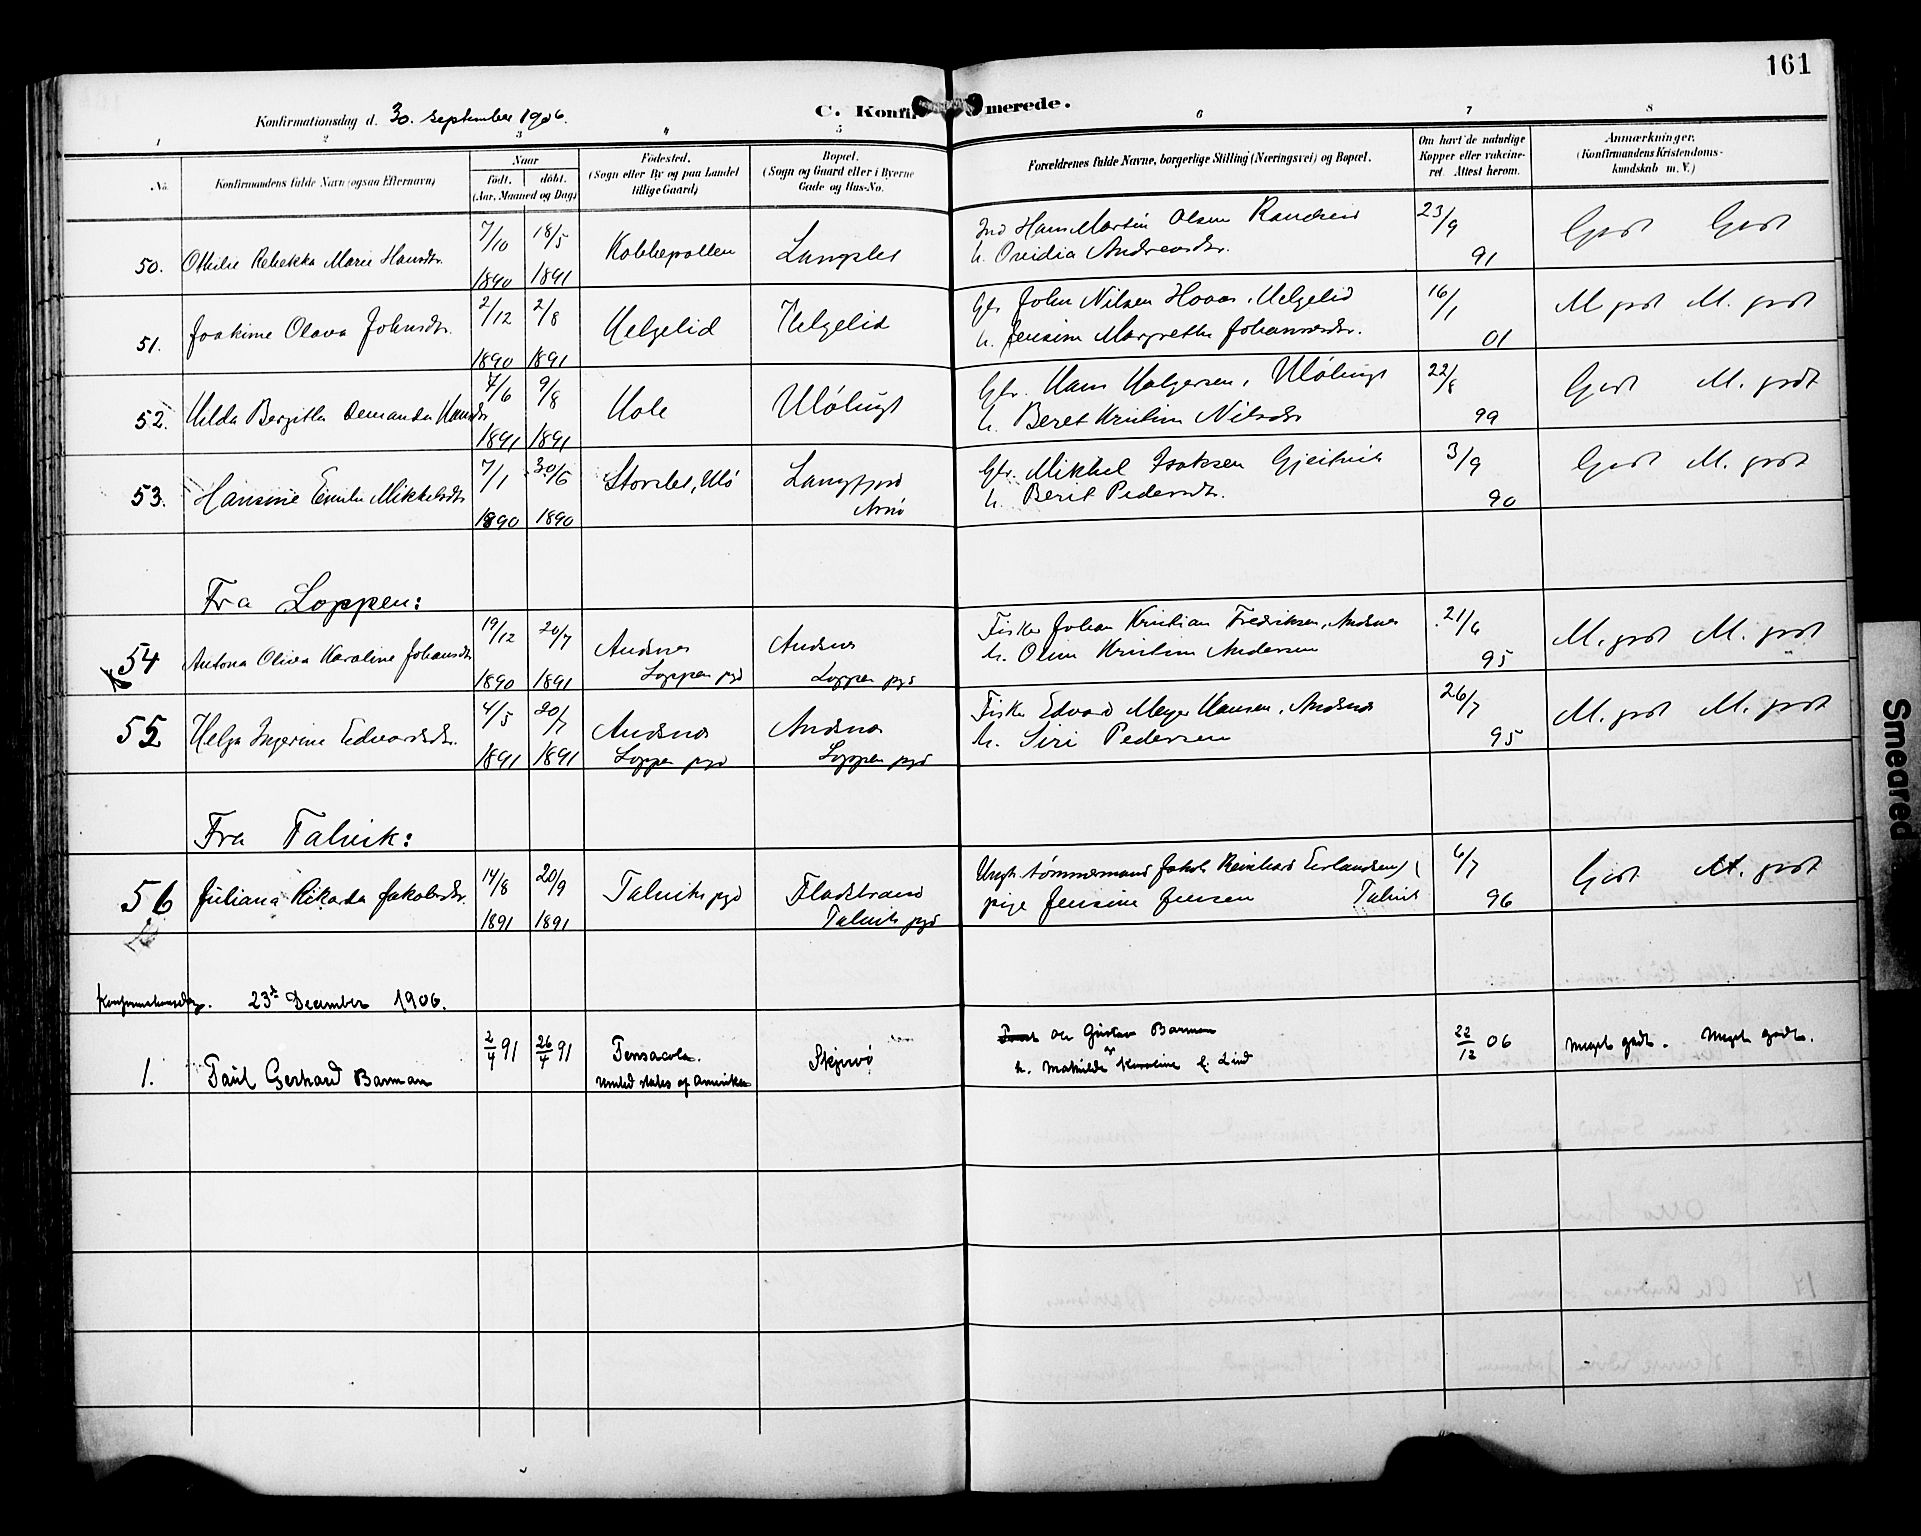 161
Konfirmationsdag d. 30. september 1906.
C. Konfir merede.
1 2 3 4 5 6 7 8
No.
Konfirmandens fulde Navn (ogsaa Efternavn)
Naar
født. døbt.
(Aar, Maaned og Dag)
Fødested.
(Sogn eller By og paa Landet
tillige Gaard)
Bopæl.
(Sogn og Gaard eller i Byerne
Gade og Hus-No.
Forældrenes fulde Navne, borgerlige Stilling (Næringsvei) og Bopæl.
Om havt de naturlige
Kopper eller vakcine-
ret. Attest herom.
Anmærkninger.
(Konfirmandens Kristendoms-
kundskab m. V.)
50. Othilie Rebekka Marie Hansdtr. 7/10 1890 18/5 1891 Kobbepollen Langslet
Ind Hans Martin Olsen Randheid
h. Ovidia Andreasdtr. 23/9 91 Godt Godt
51. Joakime Olava Johnsdtr. 2/12 1890 2/8 1891 Helgelid Helgelid
Gbr John Nilsen Hovas, Helgelid
h. Jensine Margrethe Johannesdtr. 16/1 01 M godt M. godt
52. Hilda Bergitte Demanda Hansdtr 7/6 1891 9/8 1891 Hole Uløbugt
Gbr. Hans Holgersen, Uløbugt
h. Beret Kristine Nilsdtr 22/8 99 Godt M. godt
53. Hansine Emilie Mikkelsdtr 7/1 1890 30/6 1890 Storslet, Ulø Langfjord
Arnø
Gbr. Mikkel Isaksen Gjeitvik
h. Berit Pedersdtr. 3/9 90 Godt M. godt
Fra Loppen:
54 Antona Oliva Karoline Johansdtr 19/12 1890 20/7 1891 Andsnes
Loppen pgd
Andsnes
Loppen pgd
Fisker Johan Kristian Fredriksen, Andsnes
h. Oline Kristine Andersen 21/6 95 M. godt M. godt
55 Helga Ingerine Edvardsdtr. 4/5 1891 20/7 1891 Andsnes
Loppen pgd
Andsnes
Loppen pgd
Fisker Edvard Meyer Hansen, Andsnes
h. Siri Pedersen 26/7 95 M. godt M. godt
Fra Talvik:
56 Juliana Rikarda Jakobsdtr. 14/8 1891 20/9 1891 Talviks pgd Fladstrand
Talviks pgd
Ungk. tømmermand Jakob Reinhard Erlandsen
pige Jensine Jensen Talvik 6/7 96 Godt M. godt
Konfirmationsdag. 23d December 1906.
1. Paul Gerhard Barman 2/4 91 26/4 91 Pensacola.
United states of Amerika
Skjervø
Ole Gustav Barman
h. Mathilde Karoline f. Lind 22/12 06 Meget godt. Meget godt.
Smeared